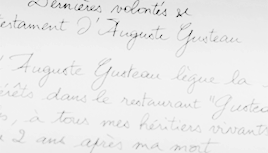 Dernières volontés &
testament d'Auguste Gusteau
Auguste Gusteau lègue la
dans le restaurant "Gusteau
à tous mes héritiers vivants
2 ans après ma mort